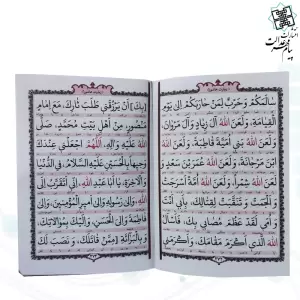 زیارت عاشورا
سَالَمَکُمْ وَحَرْبٌ لِمَنْ حَارَبَکُمْ اِلیٰ یَوْمِ
الْقِیَامَةِ، وَلَعَنَ اللهُ آلَ زِیَادٍ وَآلَ مَرْوَانَ،
وَلَعَنَ اللهُ بَنِی اُمَیَّةَ قَاطِبَةً، وَلَعَنَ اللهُ
ابْنَ مَرْجَانَةَ، وَلَعَنَ اللهُ عُمَرَبْنَ سَعْدٍ وَ
لَعَنَ اللهُ شِمْراً، وَلَعَنَ اللهُ اُمَّةً اَسْرَجَتْ
وَاَلْجَمَتْ وَتَنَقَّبَتْ لِقِتَالِکَ، بِاَبِی اَنْتَ
وَ اُمِّی لَقَدْ عَظُمَ مُصَابِی بِکَ، فَاَسْاَلُ
اللهَ الَّذِی اَکْرَمَ مَقَامَکَ، وَاَکْرَمَنِی
زیارت عاشورا
[بِکَ] اَنْ یَرْزُقَنِی طَلَبَ ثَارِکَ، مَعَ اِمَامٍ
مَنْصُورٍ مِنْ اَهْلِ بَیْتِ مُحَمَّدٍ، صَلَّی
اللهُ عَلَیْهِ وَآلِهِ. اَللّٰهُمَّ اجْعَلْنِی عِنْدَکَ
وَجِیهاً بِالْحُسَیْنِ عَلَیْهِ السَّلَامُ، فِی الدُّنْیَا
وَالْآخِرَةِ. یَا اَبَا عَبْدِ اللهِ، اِنِّی اَتَقَرَّبُ اِلَی
اللهِ، وَاِلیٰ رَسُولِهِ وَاِلیٰ اَمِیرِ الْمُؤْمِنِینَ، وَاِلیٰ
فَاطِمَةَ وَاِلَی الْحَسَنِ، وَاِلَیْکَ بِمُوَالَاتِکَ
وَ بِالْبَرَائَةِ [مِمَّنْ قَاتَلَکَ، وَ نَصَبَ لَکَ
انتشارات
پیام عدالت